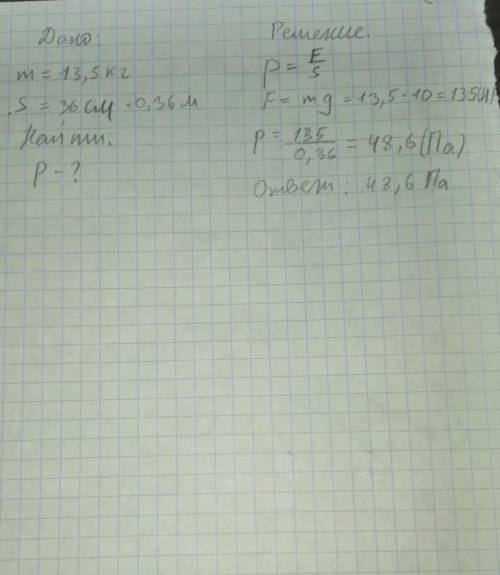 Дано:
m = 13,5 кг
S = 36 см = 0,36 м
Найти:
P - ?
Решение.
P = F/S
F = mg = 13,5 · 10 = 135(Н)
P = 135/0,36 = 48,6 (Па)
Ответ: 48,6 Па